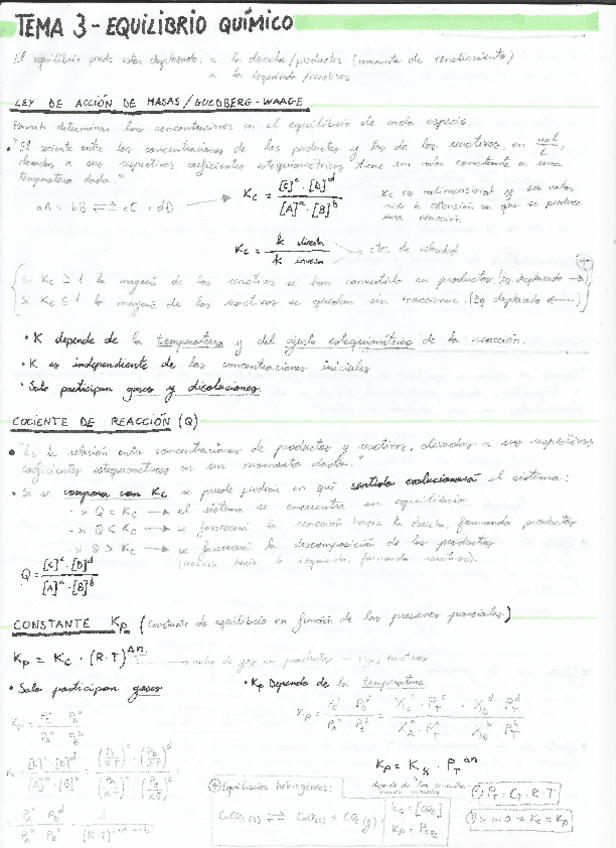 TEMA 3 - EQUILIBRIO QUÍMICO
El equilibrio puede estar desplazado: a la derecha / productos (aumento de rendimiento)
a la izquierda / reactivos
LEY DE ACCIÓN DE MASAS / GULDBERG-WAAGE
Permite determinar las concentraciones en el equilibrio de cada especie.
• "El cociente entre las concentraciones de los productos y las de los reactivos, en mol/L,
elevadas a sus respectivos coeficientes estequiométricos tiene un valor constante a una
temperatura dada."
aA + bB ⇌ cC + dD → Kc = [C]^c · [D]^d / [A]^a · [B]^b
Kc es adimensional y su valor
mide la extensión en que se produce
una reacción
Kc = k directa / k inversa → ctes. de velocidad
si Kc ≥ 1 la mayoría de los reactivos se han convertido en productos. (Eq desplazado →)
si Kc ≤ 1 la mayoría de los reactivos se quedan sin reaccionar. (Eq desplazado ←)
• K depende de la temperatura y del ajuste estequiométrico de la reacción.
• K es independiente de las concentraciones iniciales
• Solo participan gases y disoluciones.
COCIENTE DE REACCIÓN (Q)
• "Es la relación entre concentraciones de productos y reactivos, elevadas a sus respectivos
coeficientes estequiométricos en un momento dado."
• Si se compara con Kc se puede predecir en qué sentido evolucionará el sistema:
- si Q = Kc → el sistema se encuentra en equilibrio
- si Q < Kc → se favorecerá la reacción hacia la derecha, formando productos
- si Q > Kc → se favorecerá la descomposición de los productos
(reacción hacia la izquierda, formando reactivos).
Q = [C]^c · [D]^d / [A]^a · [B]^b
CONSTANTE Kp (Constante de equilibrio en función de las presiones parciales)
Kp = Kc · (R·T)^Δn → moles de gas en productos - reactivos
• Solo participan gases
• Kp Depende de la temperatura
Kp = Kx · P_T^Δn
⊕ Equilibrios heterogéneos:
CaCO3 (s) ⇌ CaO (s) + CO2 (g)
Kc = [CO2]
Kp = P_CO2
P_T = C_T · R · T